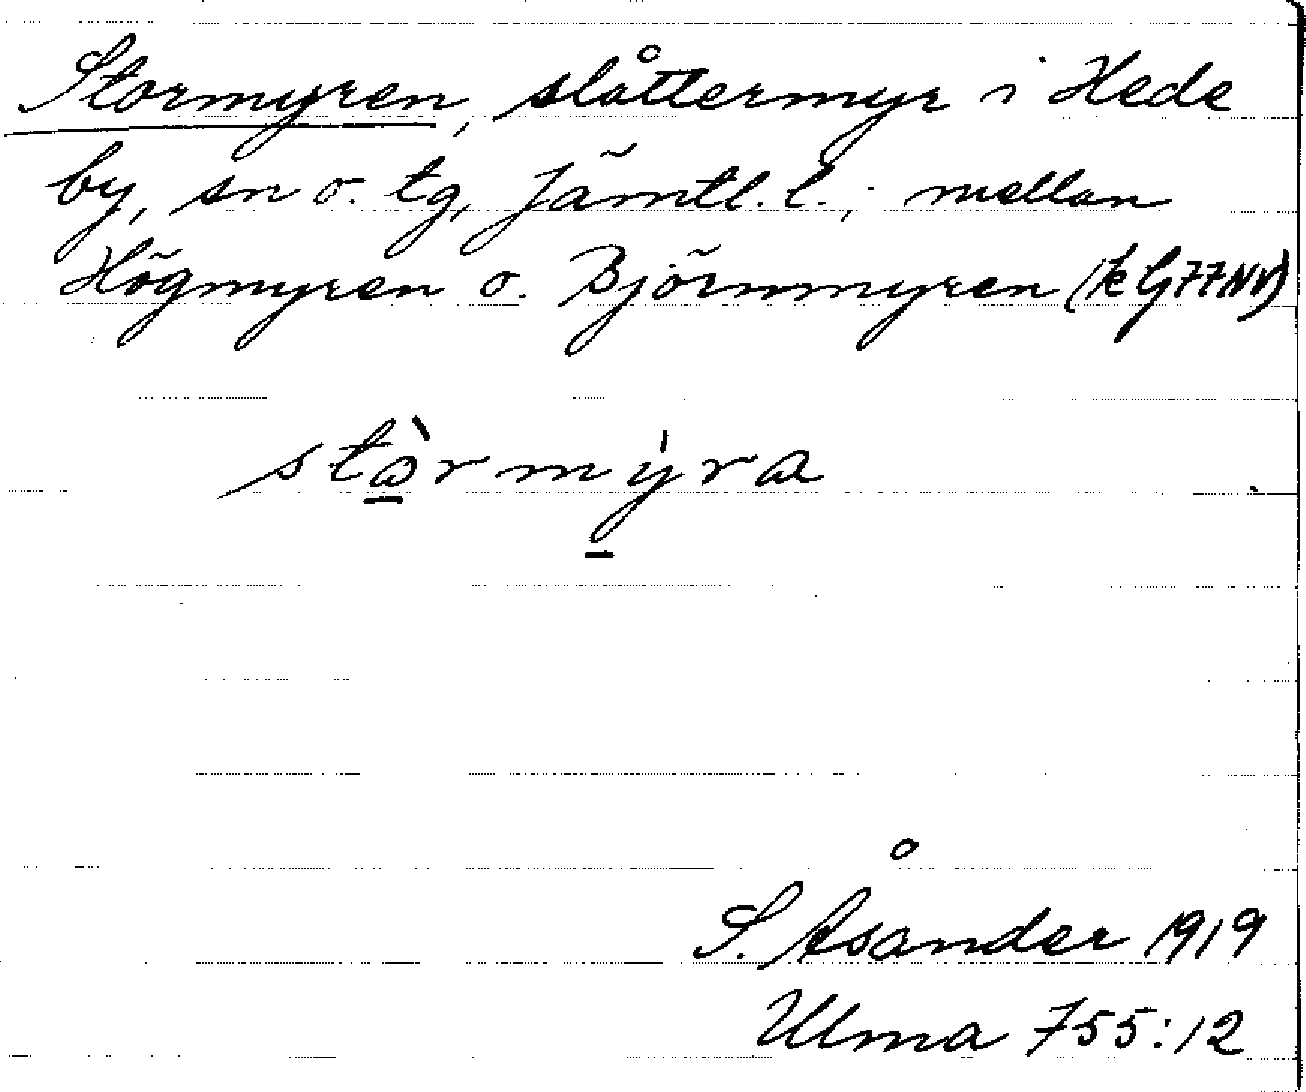 Stormyren, slåttermyr i Hede
by, sn o. tg, Jämtl. l.; mellan
Högmyren o. Björnmyren (k G77NV)
stàrmýra
S. Åsander 1919
Ulma 755:12